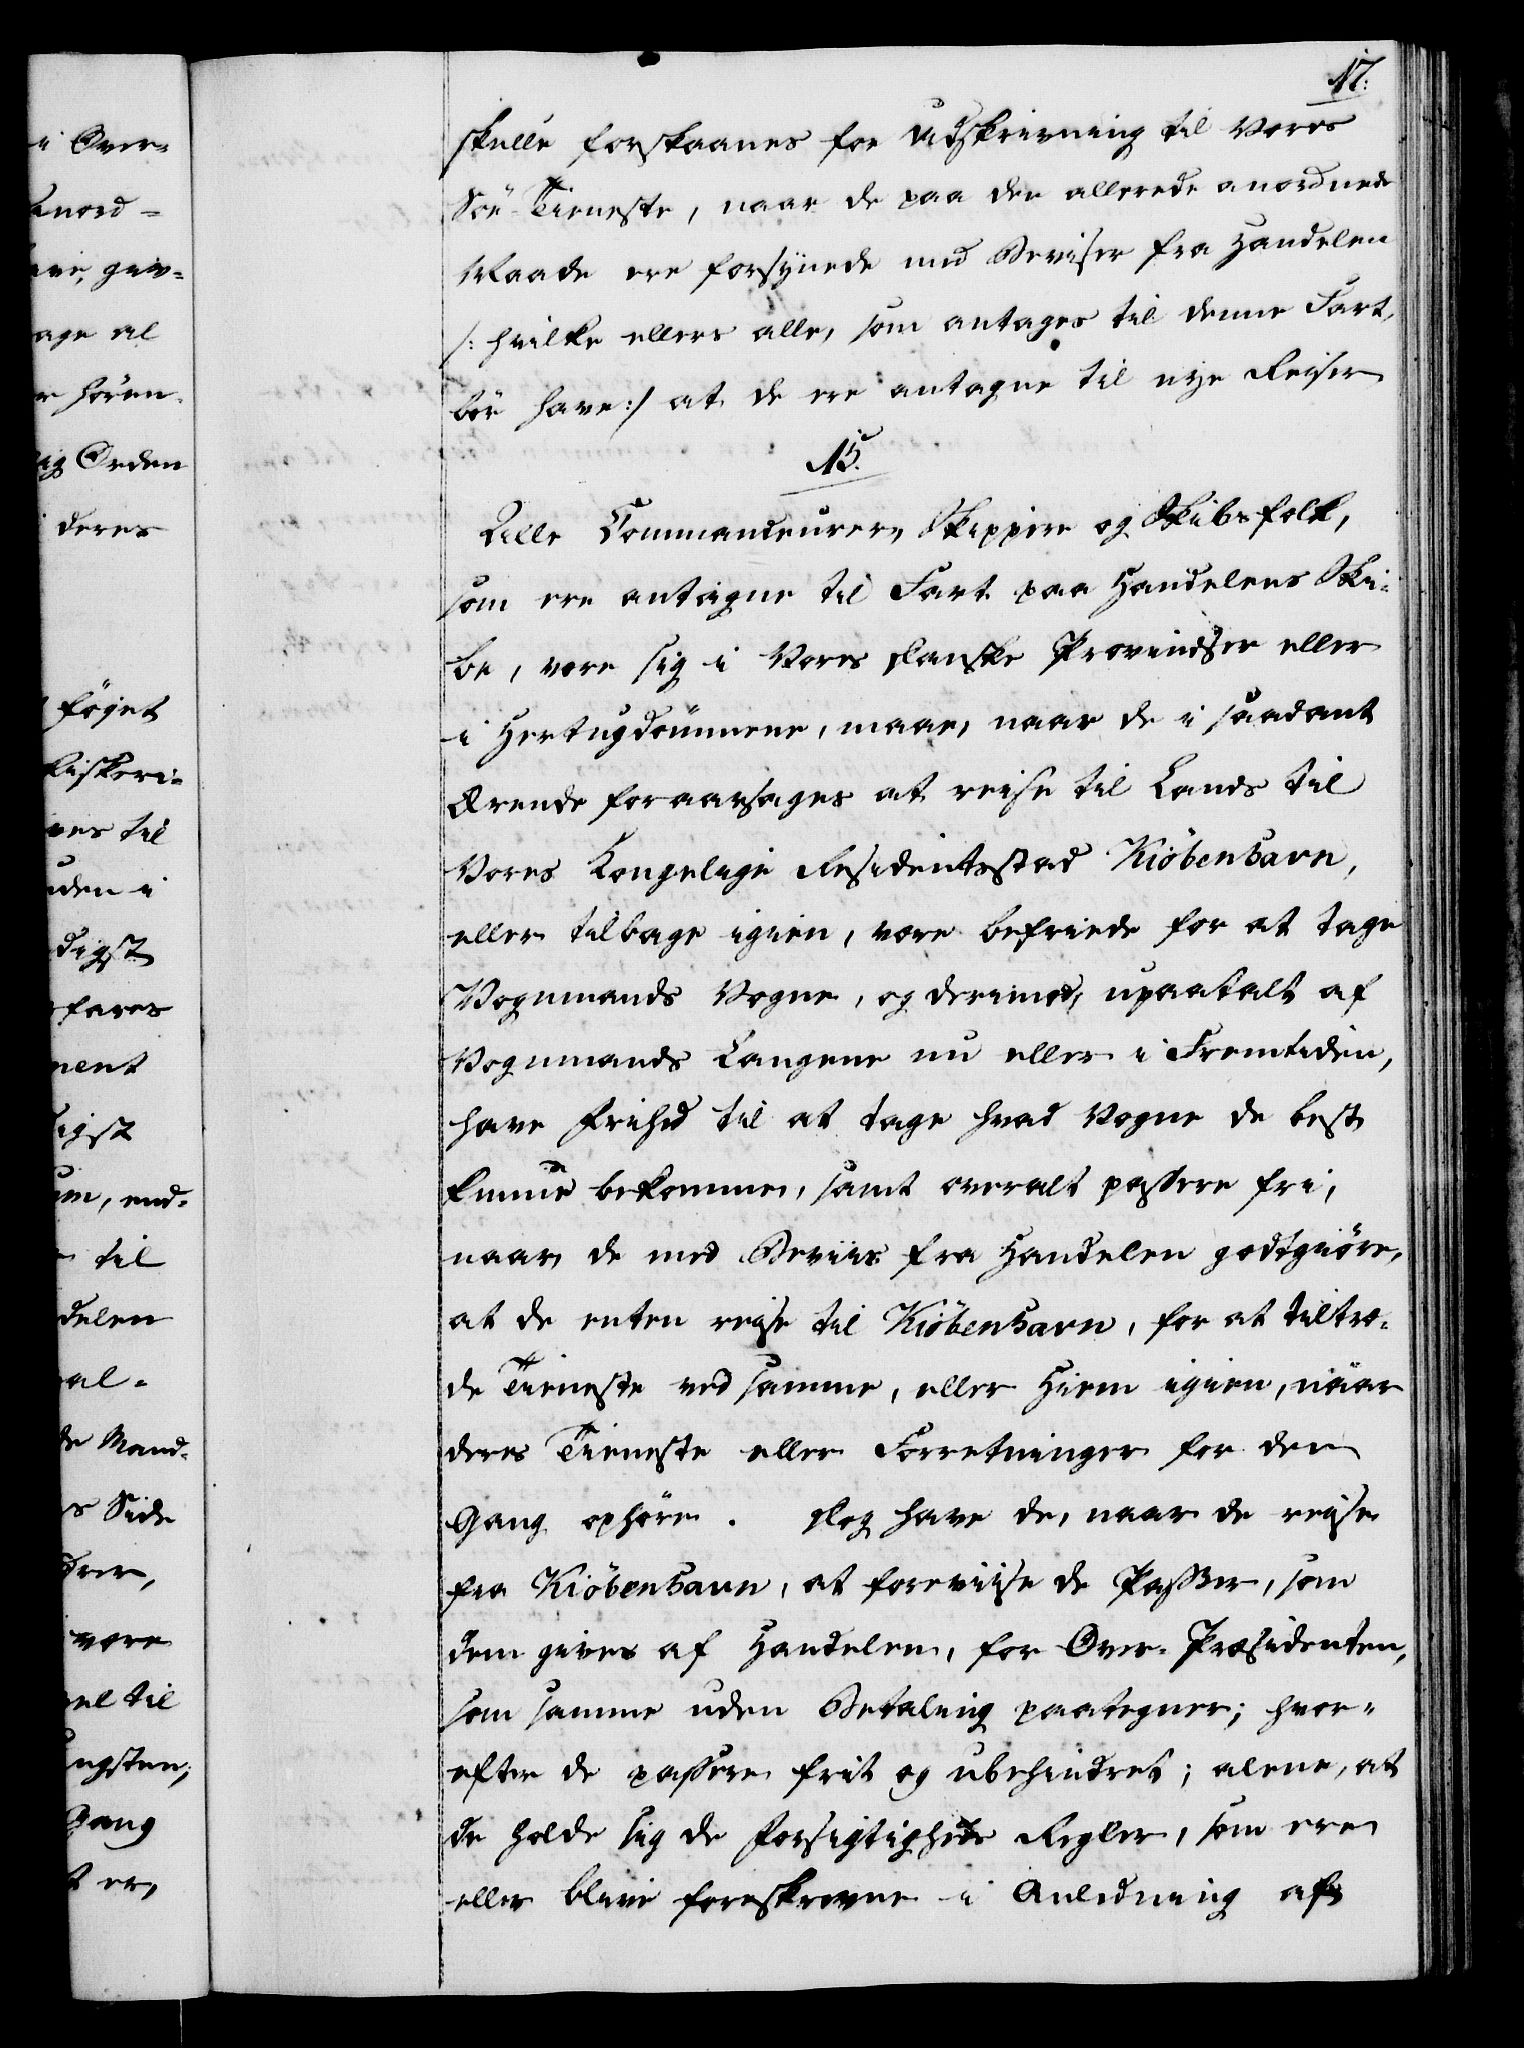 17.
skulle forskaanes for Udskrivning til Vores
Söe-Tieneste, naar de paa den allerede anordnede
Maade ere forsynede med Beviser fra Handelen
/: hvilke ellers alle, som antages til denne Fart,
bör have :/ at de ere antagne til nye Reiser
15.
Alle Commandeurer, Skippere og Skibsfolk,
som ere antagne til Fart paa Handelens Ski-
be, være sig i Vores danske Provindser eller
i Hertugdömmene, maae, naar de i saadant
Ærende foraarsages at reise til Lands til
Vores Kongelige Residentsstad Kiöbenhavn,
eller tilbage igien, være befriede for at tage
Vognmands Vogne, og derimod, upaatalt af
Vognmands Laugene nu eller i Fremtiden,
have Frihed til at tage hvad Vogne de best
kunne bekomme, samt overalt passere frie,
naar de med Beviis fra Handelen godtgiöre,
at de enten reise til Kiöbenhavn, for at tiltræ-
de Tieneste ved samme, eller Hiem igien, naar
deres Tieneste eller Forretninger for den
Gang ophöre. Dog have de, naar de reise
fra Kiöbenhavn, at foreviise de Passer, som
dem gives af Handelen, for Over-Præsidenten,
som samme uden Betaling paategner; hvor-
efter de passere frit og ubehindret; alene, at
de holde sig de Forsigtigheds Regler, som ere
eller blive foreskrevne i Anledning af
i Over-
anord-
give,
age al
hören-
ig Orden
deres
föjet
Fiskeri-
ves til
uden i
digst
fares
ment
igst
um, end-
til
delen
al-
de Mand-
s Side
drer,
være
vel til
ngsten;
Gang
t er,